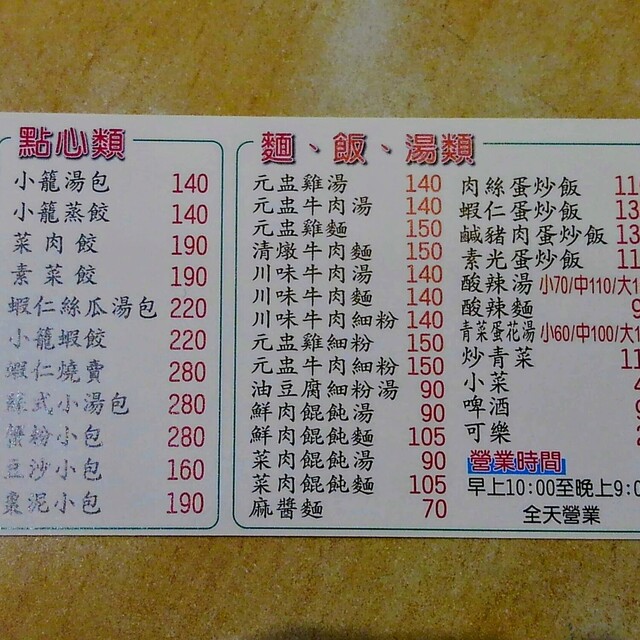 點心類
小籠湯包 140
小籠蒸餃 140
菜肉餃 190
素菜餃 190
蝦仁絲瓜湯包 220
小籠蝦餃 220
蝦仁燒賣 280
式小湯包 280
蟹粉小包 280
豆沙小包 160
棗泥小包 190
麵、飯、湯類
元盅雞湯 140
元盅牛肉湯 140
元盅雞麵 150
清燉牛肉麵 150
川味牛肉湯 140
川味牛肉麵 140
川味牛肉細粉 140
元盅雞細粉 150
元盅牛肉細粉 150
油豆腐細粉湯 90
鮮肉餛飩湯 90
鮮肉餛飩麵 105
菜肉餛飩湯 90
菜肉餛飩麵 105
麻醬麵 70
肉絲蛋炒飯 11
蝦仁蛋炒飯 13
鹹豬肉蛋炒飯 13
素光蛋炒飯 11
酸辣湯 小70/中110/大1
酸辣麵
青菜蛋花湯 小60/中100/大1
炒青菜 11
小菜
啤酒
可樂
營業時間
早上10:00至晚上9:0
全天營業